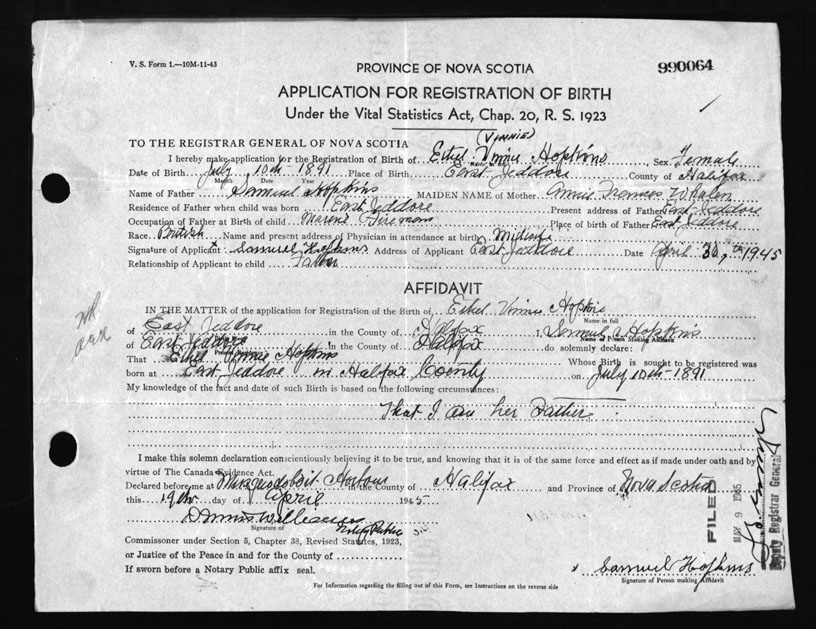 V. S. Form 1.—10M-11-43
PROVINCE OF NOVA SCOTIA
990064
APPLICATION FOR REGISTRATION OF BIRTH
Under the Vital Statistics Act, Chap. 20, R. S. 1923
(VINNIE)
TO THE REGISTRAR GENERAL OF NOVA SCOTIA
I hereby make application for the Registration of Birth of Ethel Vinnie Hopkins, Sex Female
Date of Birth July 10th 1891 Place of Birth East Jeddore County of Halifax
Month Day Year
Name of Father Samuel Hopkins MAIDEN NAME of Mother Annie Frances Whalen
Residence of Father when child was born East Jeddore Present address of Father East Jeddore
Occupation of Father at Birth of child Marine Fireman Place of birth of Father East Jeddore
Race British Name and present address of Physician in attendance at birth
Signature of Applicant Samuel Hopkins Address of Applicant East Jeddore Date April 1945
Relationship of Applicant to child Father
AFFIDAVIT
IN THE MATTER of the application for Registration of the Birth of Ethel Vinnie Hopkins
Name in full
of East Jeddore in the County of Halifax I, Samuel Hopkins
Name of Person Making Affidavit
of East Jeddore in the County of Halifax do solemnly declare:
That Ethel Vinnie Hopkins Whose Birth is sought to be registered was
born at East Jeddore in Halifax County on July 10th-1891
My knowledge of the fact and date of such Birth is based on the following circumstances:
That I am her Father
I make this solemn declaration conscientiously believing it to be true, and knowing that it is of the same force and effect as if made under oath and by
virtue of The Canada Evidence Act.
Declared before me at Musquodoboit Harbour in the County of Halifax and Province of Nova Scotia
this 19th day of April 1945
Signature of
Notary Public
Commissioner under Section 5, Chapter 38, Revised Statutes, 1923,
or Justice of the Peace in and for the County of
If sworn before a Notary Public affix seal.
Samuel Hopkins
Signature of Person making Affidavit
For Information regarding the filling out of this Form, see Instructions on the reverse side
FILED
MAY 9 1945
Deputy Registrar General